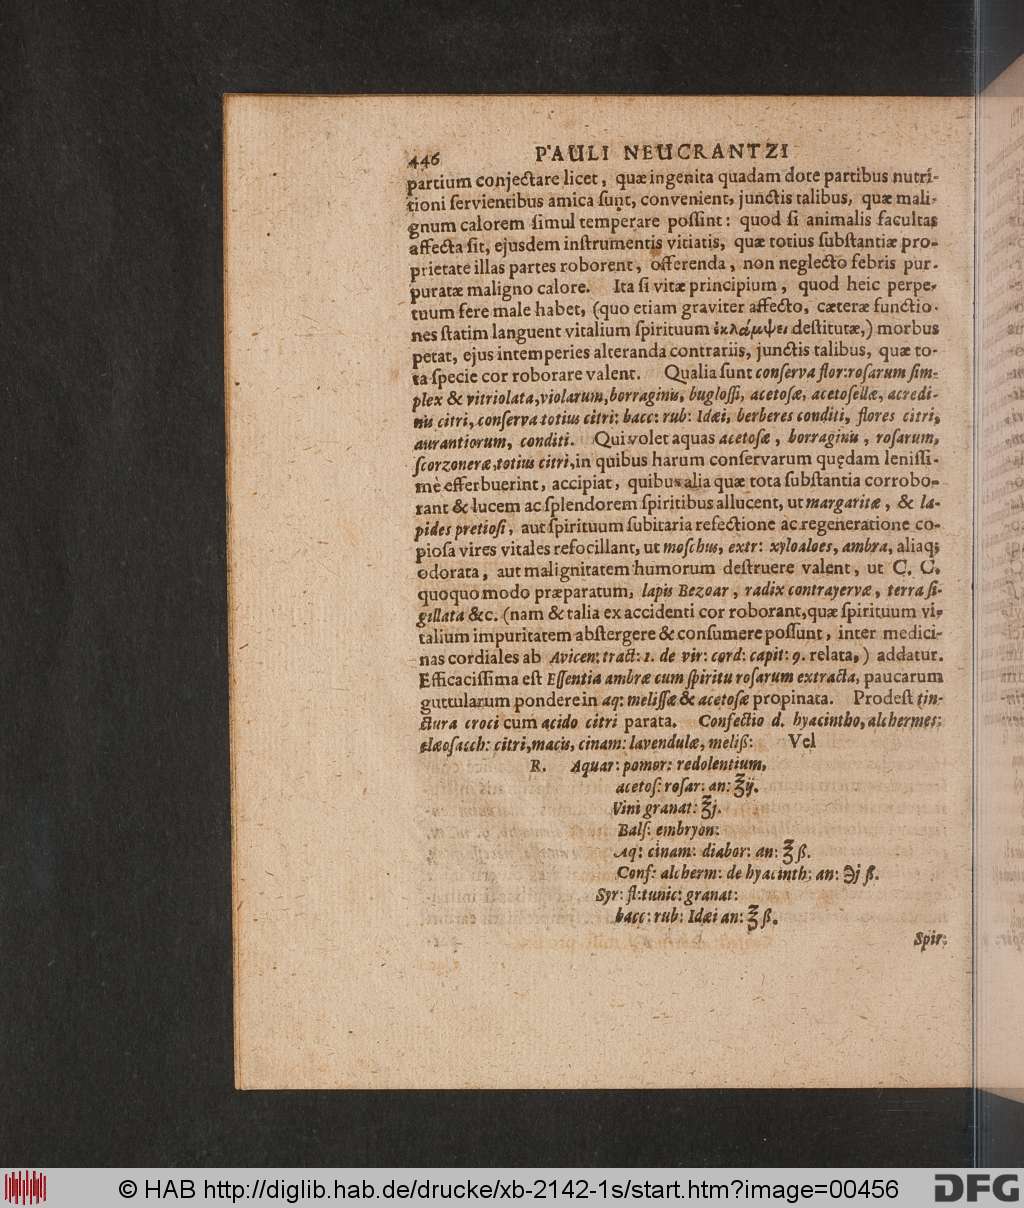 446 PAULI NEUCRANTZI
partium conjectare licet, quæ ingenita quadam dote partibus nutri-
tioni ſervientibus amica ſunt, convenient, junctis talibus, quæ mali-
gnum calorem ſimul temperare poſſint: quod ſi animalis facultas
affecta ſit, ejusdem inſtrumentis vitiatis, quæ totius ſubſtantiæ pro-
prietate illas partes roborent, offerenda, non neglecto febris pur-
puratæ maligno calore. Ita ſi vitæ principium, quod heic perpe-
tuum fere male habet, (quo etiam graviter affecto, cæteræ functio-
nes ſtatim languent vitalium ſpirituum ἐκλάμψει deſtitutæ,) morbus
petat, ejus intemperies alteranda contrariis, junctis talibus, quæ to-
ta ſpecie cor roborare valent. Qualia ſunt conſerva flor: roſarum ſim-
plex & vitriolata, violarum, borraginis, bugloſſi, acetoſæ, acetoſellæ, acredi-
nis citri, conſerva totius citri; bacc: rub: Idæi, berberes conditi, flores citri,
aurantiorum, conditi. Qui volet aquas acetoſæ, borraginis, roſarum,
ſcorzoneræ, totius citri, in quibus harum conſervarum quędam leniſſi-
mè efferbuerint, accipiat, quibus alia quæ tota ſubſtantia corrobo-
rant & lucem ac ſplendorem ſpiritibus allucent, ut margaritæ, & la-
pides pretioſi, aut ſpirituum ſubitaria refectione ac regeneratione co-
pioſa vires vitales refocillant, ut moſchus, extr: xyloaloes, ambra, aliaq;
odorata, aut malignitatem humorum deſtruere valent, ut C. C.
quoquo modo præparatum, lapis Bezoar, radix contrayervæ, terra ſi-
gillata &c. (nam & talia ex accidenti cor roborant, quæ ſpirituum vi-
talium impuritatem abſtergere & conſumere poſſunt, inter medici-
nas cordiales ab Avicen: tract: 1. de vir: cord: capit: 9. relata,) addatur.
Efficaciſſima eſt Eſſentia ambræ cum ſpiritu roſarum extracta, paucarum
guttularum pondere in aq: meliſſæ & acetoſæ propinata. Prodeſt tin-
ctura croci cum acido citri parata. Confectio d. hyacintho, alchermes;
elæoſacch: citri, macis, cinam: lavendulæ, meliß: Vel
R. Aquar: pomor: redolentium,
acetoſ: roſar: an: ℥ij.
Vini granat: ℥j.
Balſ: embryon:
Aq: cinam: diabor: an: ℥ ß.
Conf: alcherm: de hyacinth: an: ℈j ß.
Syr: fl: tunic: granat:
bacc: rub: Idæi an: ℥ ß.
Spir:
© HAB http://diglib.hab.de/drucke/xb-2142-1s/start.htm?image=00456
DFG